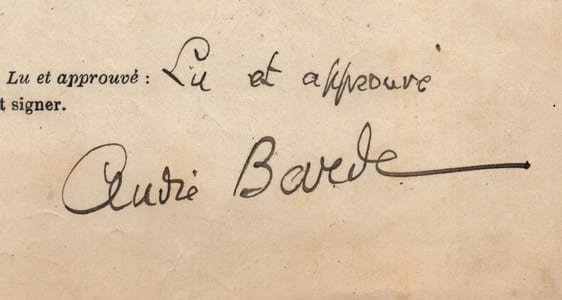 Lu et approuvé : Lu et approuvé
t signer.
André Barde